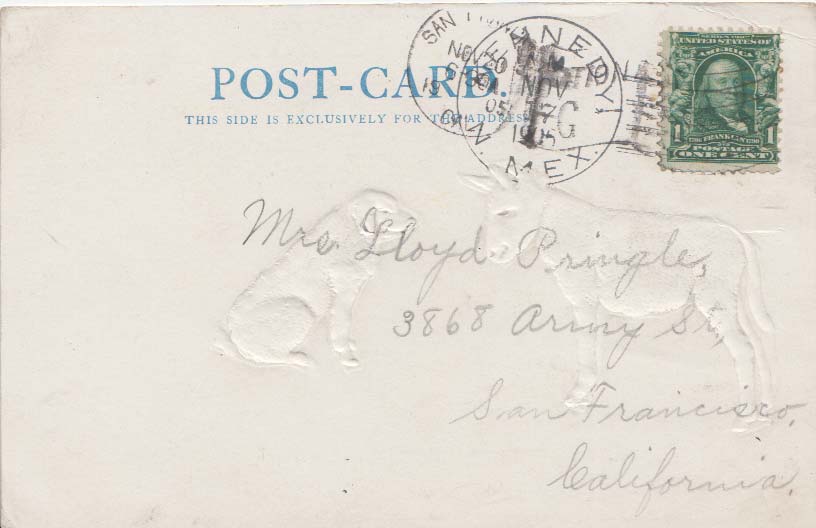 POST-CARD.
THIS SIDE IS EXCLUSIVELY FOR THE ADDRESS
SAN
NOV 20
05
NOV
17
1905
MEX.
SERIES 1902
UNITED STATES OF
AMERICA
1
FRANKLIN
POSTAGE
ONE CENT
Mrs. Lloyd Pringle,
3868 Army St.,
San Francisco,
California.